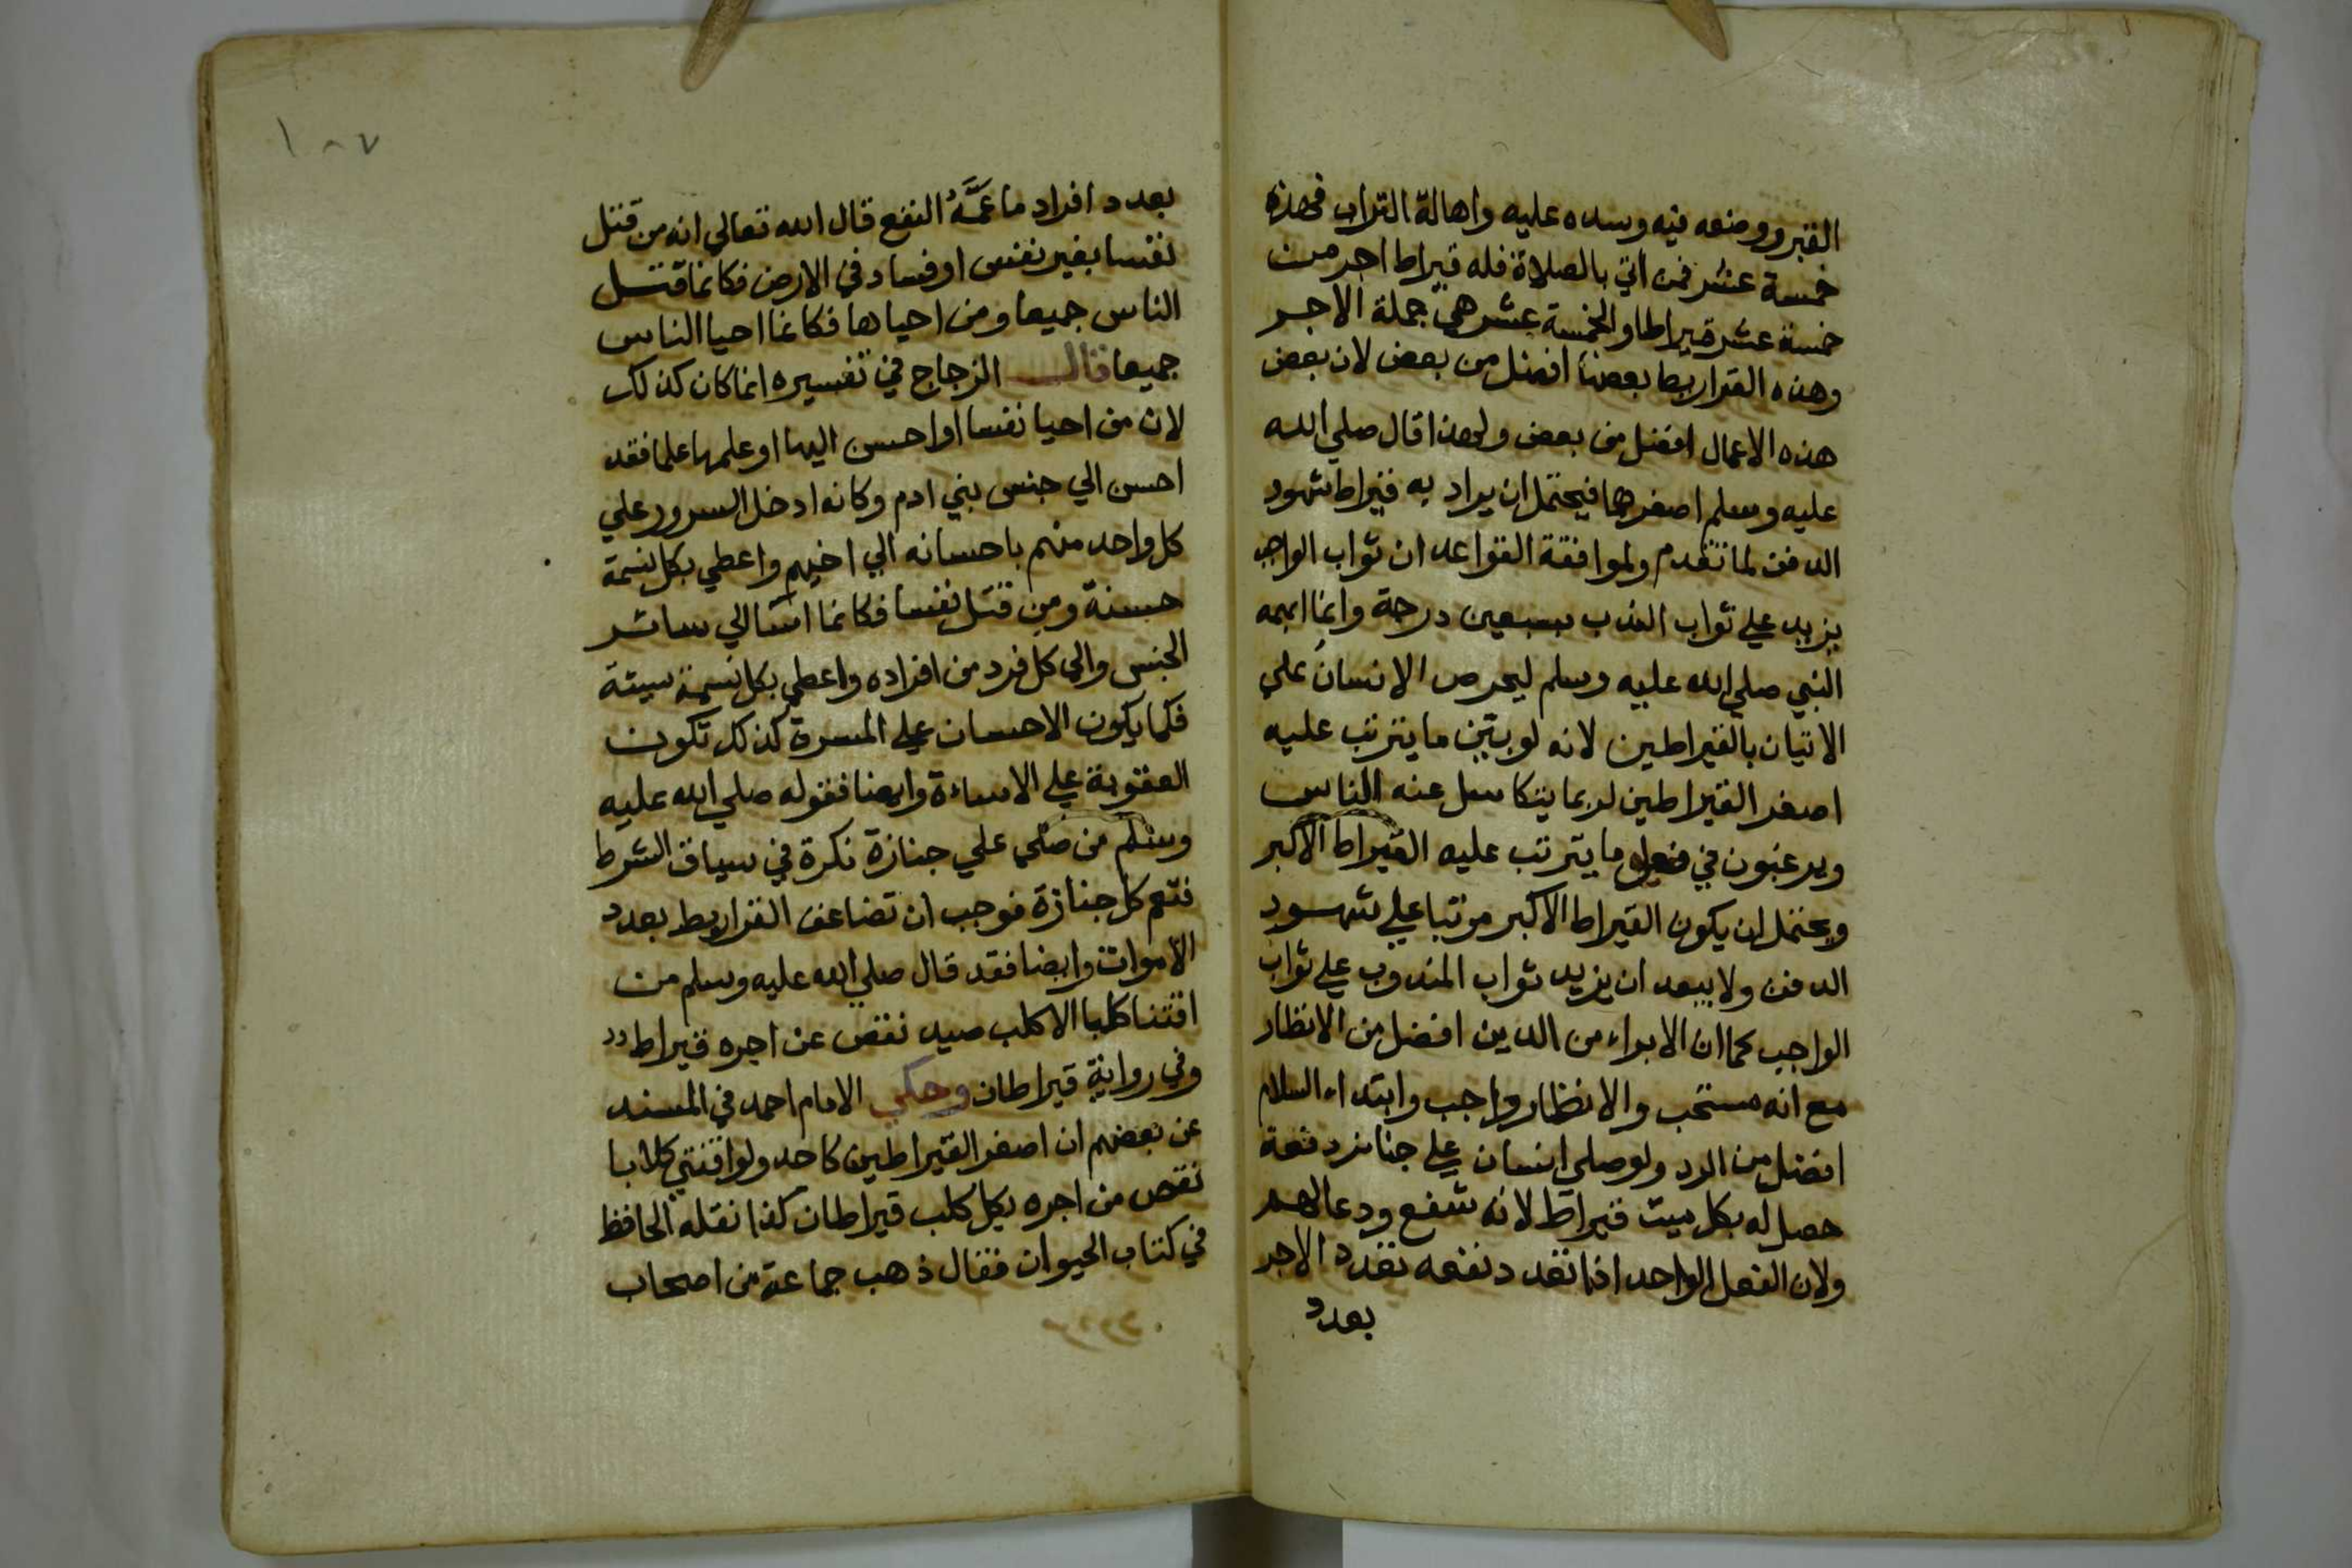 القبر ووضعه فيه وسده عليه واهالة التراب فهذه
خمسة عشر فمن اتي بالصلاة فله قيراط اجر من
خمسة عشر قيراطا والخمسة عشر هي جملة الاجر
وهذه القراريط بعضها افضل من بعض لان بعض
هذه الاعمال افضل من بعض ولهذا قال صلي الله
عليه وسلم اصغرهما فيحتمل ان يراد به قيراط شهود
الدفن لما تقدم ولموافقة القواعد ان ثواب الواجب
يزيد علي ثواب الندب بسبعين درجة وانما ابهمه
النبي صلي الله عليه وسلم ليحرص الانسان علي
الاتيان بالقيراطين لانه لو بين ما يترتب عليه
اصغر القيراطين لربما يتكاسل عنه الناس
ويرغبون في فعل ما يترتب عليه القيراط الاكبر
ويحتمل ان يكون القيراط الاكبر مرتبا علي شهود
الدفن ولا يبعد ان يزيد ثواب المندوب علي ثواب
الواجب كما ان الابراء من الدين افضل من الانظار
مع انه مستحب والانظار واجب وابتداء السلام
افضل من الرد ولو صلي انسان علي جنائز دفعة
حصل له بكل ميت قيراط لانه شفع ودعا لهم
ولان الفعل الواحد اذا تعدد نفعه تعدد الاجر
بعدد
١٠٧
بعدد افراد ما عَمَّهُ النفع قال الله تعالي انه من قتل
نفسا بغير نفس او فساد في الارض فكانما قتل
الناس جميعا ومن احياها فكانما احيا الناس
جميعا قال الزجاج في تفسيره انما كان كذلك
لان من احيا نفسا او احسن اليها او علمها علما فقد
احسن الي جنس بني ادم وكانه ادخل السرور علي
كل واحد منهم باحسانه الي اخيهم واعطي بكل نسمة
حسنة ومن قتل نفسا فكانما اسا الي سائر
الجنس والي كل فرد من افراده واعطي بكل نسمة سيئة
فكما يكون الاحسان علي المسرة كذلك تكون
العقوبة علي الاساءة وايضا فقوله صلي الله عليه
وسلم من صلي علي جنازة نكرة في سياق الشرط
فتعم كل جنازة فوجب ان تضاعف القراريط بعدد
الاموات وايضا فقد قال صلي الله عليه وسلم من
اقتنا كلبا الا كلب صيد نقص من اجره قيراط
وفي رواية قيراطان وحكي الامام احمد في المسند
عن بعضهم ان اصغر القيراطين كاحد ولو اقتني كلابا
نقص من اجره بكل كلب قيراطان كذا نقله الحافظ
في كتاب الحيوان فقال ذهب جماعة من اصحاب